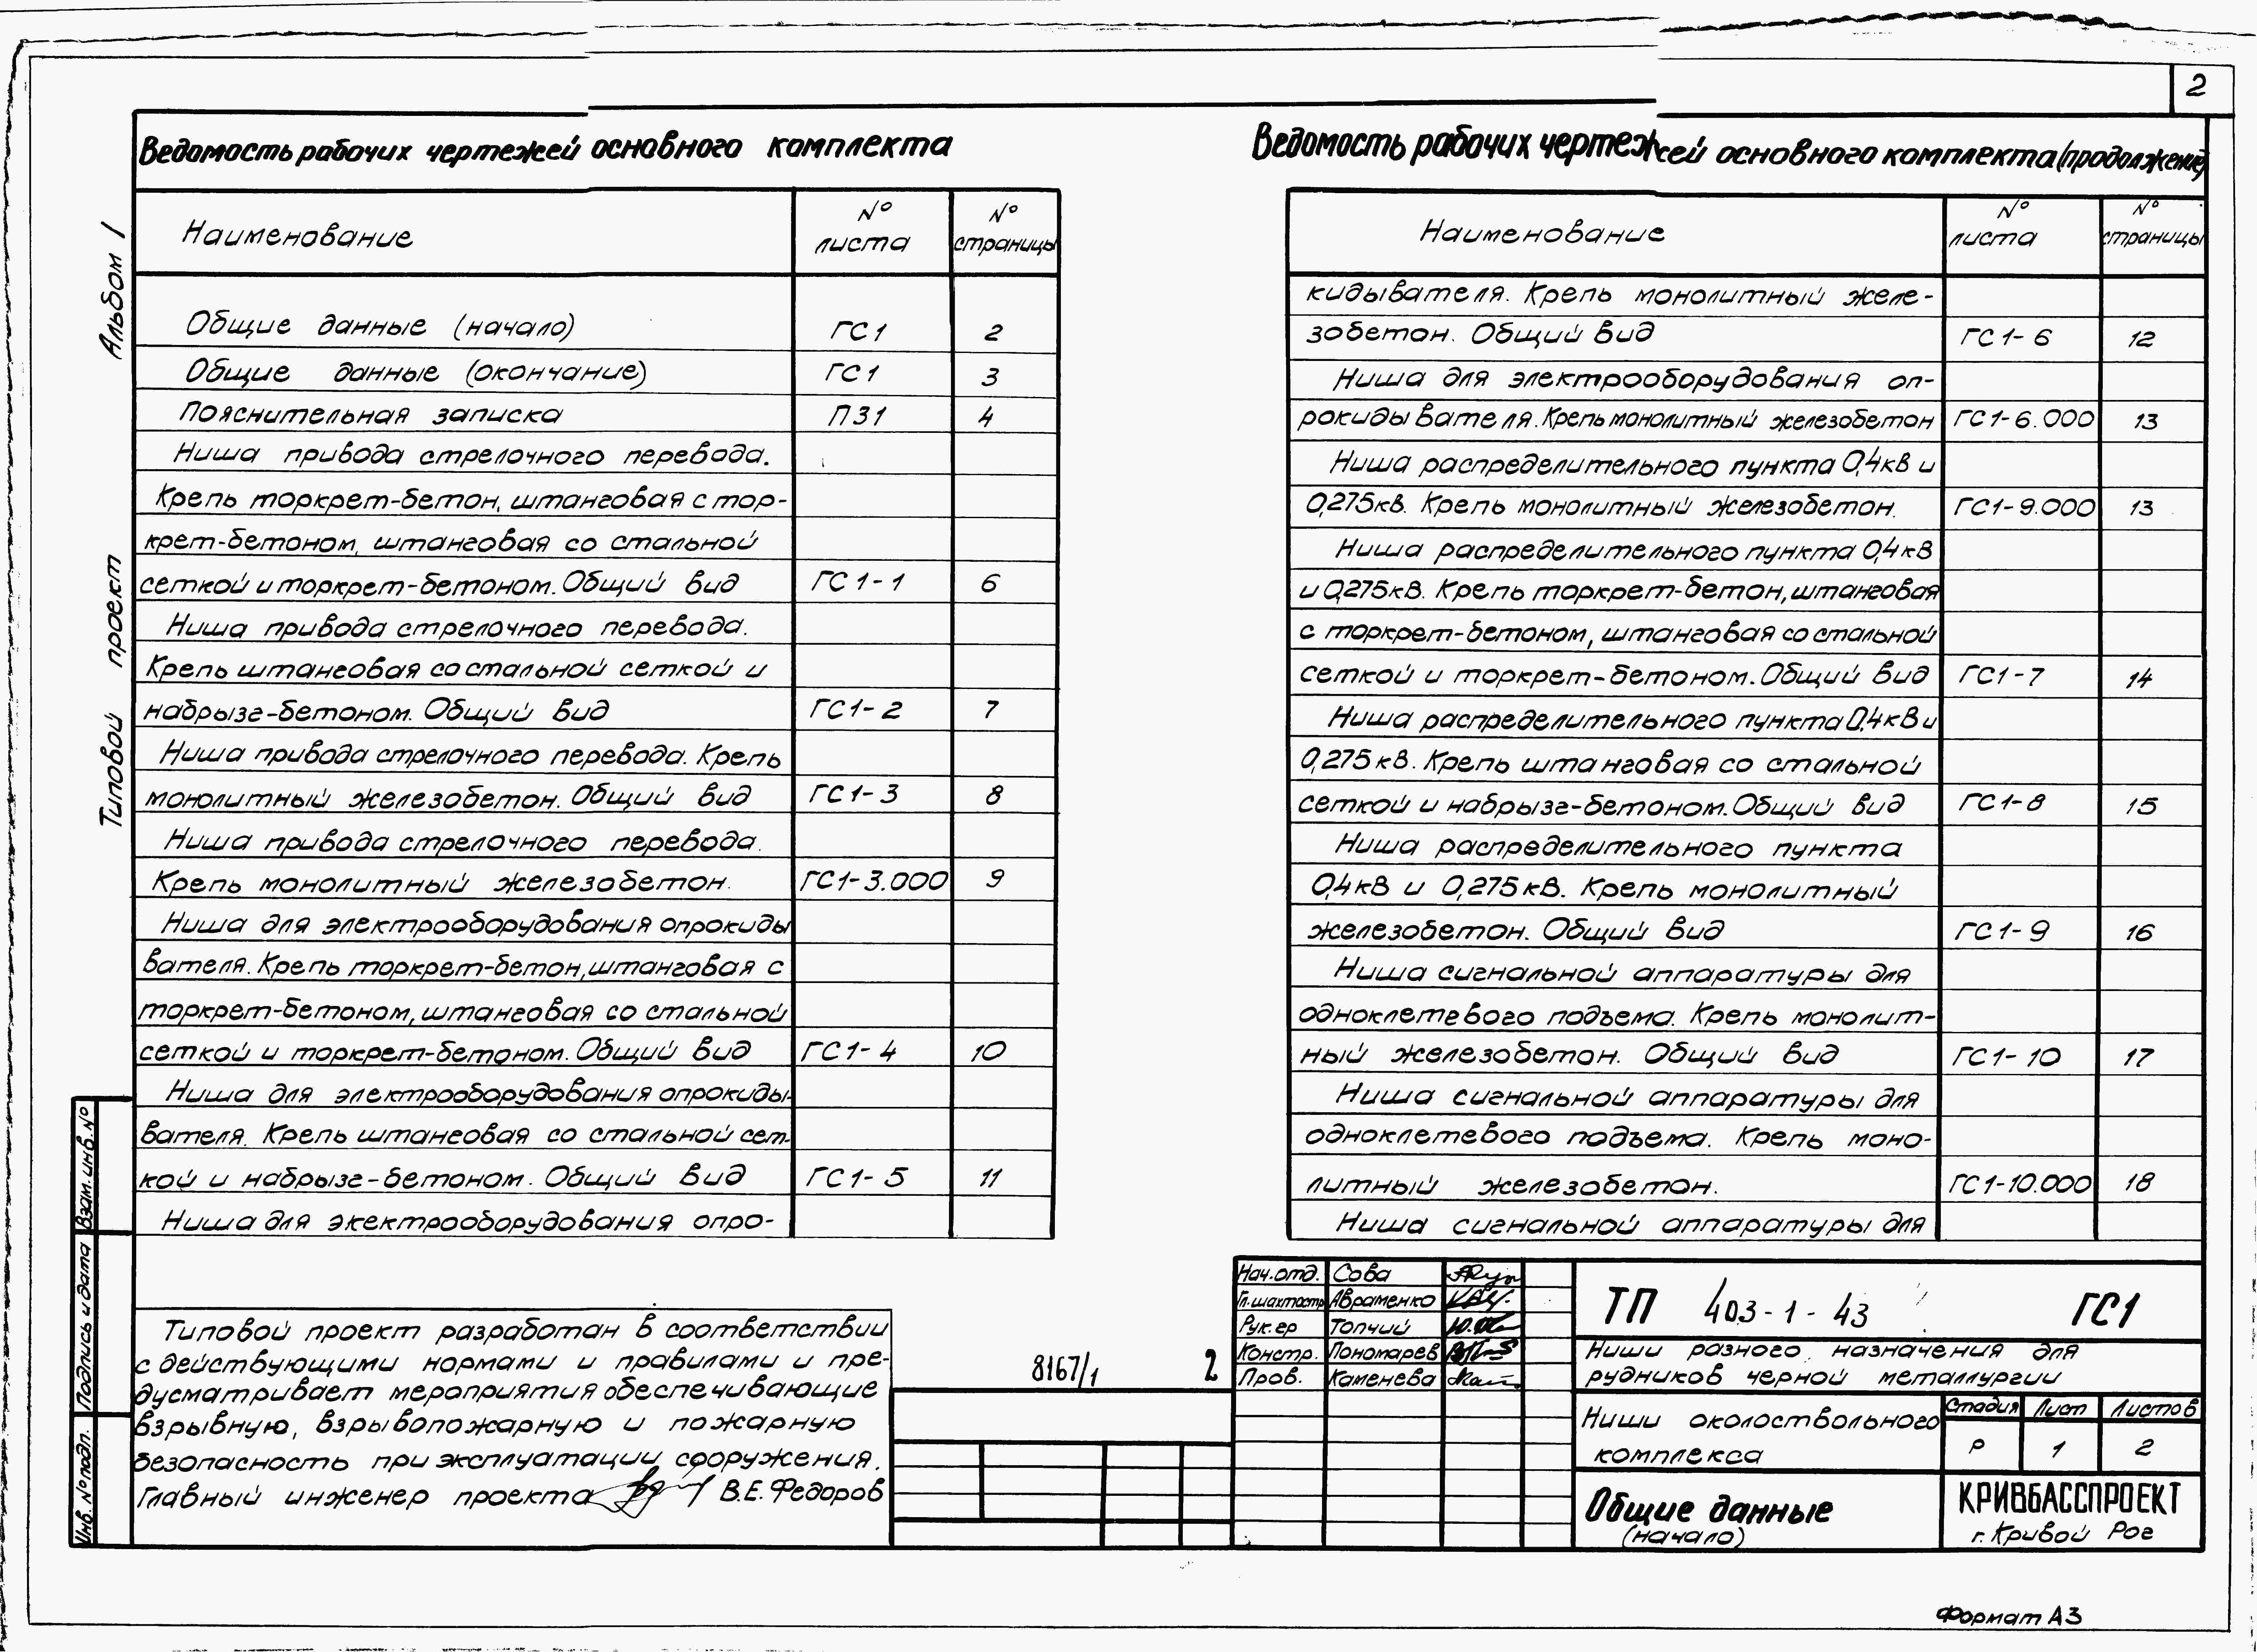 2
Ведомость рабочих чертежей основного комплекта
Наименование № листа № страницы
Общие данные (начало) ГС1 2
Общие данные (окончание) ГС1 3
Пояснительная записка ПЗ1 4
Ниша привода стрелочного перевода.
Крепь торкрет-бетон, штанговая с тор-
крет-бетоном, штанговая со стальной
сеткой и торкрет-бетоном. Общий вид ГС1-1 6
Ниша привода стрелочного перевода.
Крепь штанговая со стальной сеткой и
набрызг-бетоном. Общий вид ГС1-2 7
Ниша привода стрелочного перевода. Крепь
монолитный железобетон. Общий вид ГС1-3 8
Ниша привода стрелочного перевода.
Крепь монолитный железобетон. ГС1-3.000 9
Ниша для электрооборудования опрокиды
вателя. Крепь торкрет-бетон, штанговая с
торкрет-бетоном, штанговая со стальной
сеткой и торкрет-бетоном. Общий вид ГС1-4 10
Ниша для электрооборудования опрокиды-
вателя. Крепь штанговая со стальной сет-
кой и набрызг-бетоном. Общий вид ГС1-5 11
Ниша для экектрооборудования опро-
Ведомость рабочих чертежей основного комплекта (продолжение)
Наименование № листа № страницы
кидывателя. Крепь монолитный желе-
зобетон. Общий вид ГС1-6 12
Ниша для электрооборудования оп-
рокидывателя. Крепь монолитный железобетон ГС1-6.000 13
Ниша распределительного пункта 0,4кВ и
0,275кВ. Крепь монолитный железобетон. ГС1-9.000 13
Ниша распределительного пункта 0,4кВ
и 0,275кВ. Крепь торкрет-бетон, штанговая
с торкрет-бетоном, штанговая со стальной
сеткой и торкрет-бетоном. Общий вид ГС1-7 14
Ниша распределительного пункта 0,4кВ и
0,275кВ. Крепь штанговая со стальной
сеткой и набрызг-бетоном. Общий вид ГС1-8 15
Ниша распределительного пункта
0,4кВ и 0,275кВ. Крепь монолитный
железобетон. Общий вид ГС1-9 16
Ниша сигнальной аппаратуры для
одноклетевого подъема. Крепь монолит-
ный железобетон. Общий вид ГС1-10 17
Ниша сигнальной аппаратуры для
одноклетевого подъема. Крепь моно-
литный железобетон. ГС1-10.000 18
Ниша сигнальной аппаратуры для
Типовой проект Альбом 1
Взам. инв. №
Подпись и дата
Инв. № подл.
Типовой проект разработан в соответствии
с действующими нормами и правилами и пре-
дусматривает мероприятия обеспечивающие
взрывную, взрывопожарную и пожарную
безопасность при эксплуатации сооружения.
Главный инженер проекта В.Е. Федоров
8167/1 2
Нач.отд. Сова
Гл.шахтостр Авраменко
Рук.гр Топчий
Констр. Пономарев
Пров. Каменева
ТП 403-1-43 ГС1
Ниши разного назначения для
рудников черной металлургии
Ниши околоствольного
комплекса
Стадия Лист Листов
Р 1 2
Общие данные
(начало)
КРИВБАССПРОЕКТ
г. Кривой Рог
Формат А3